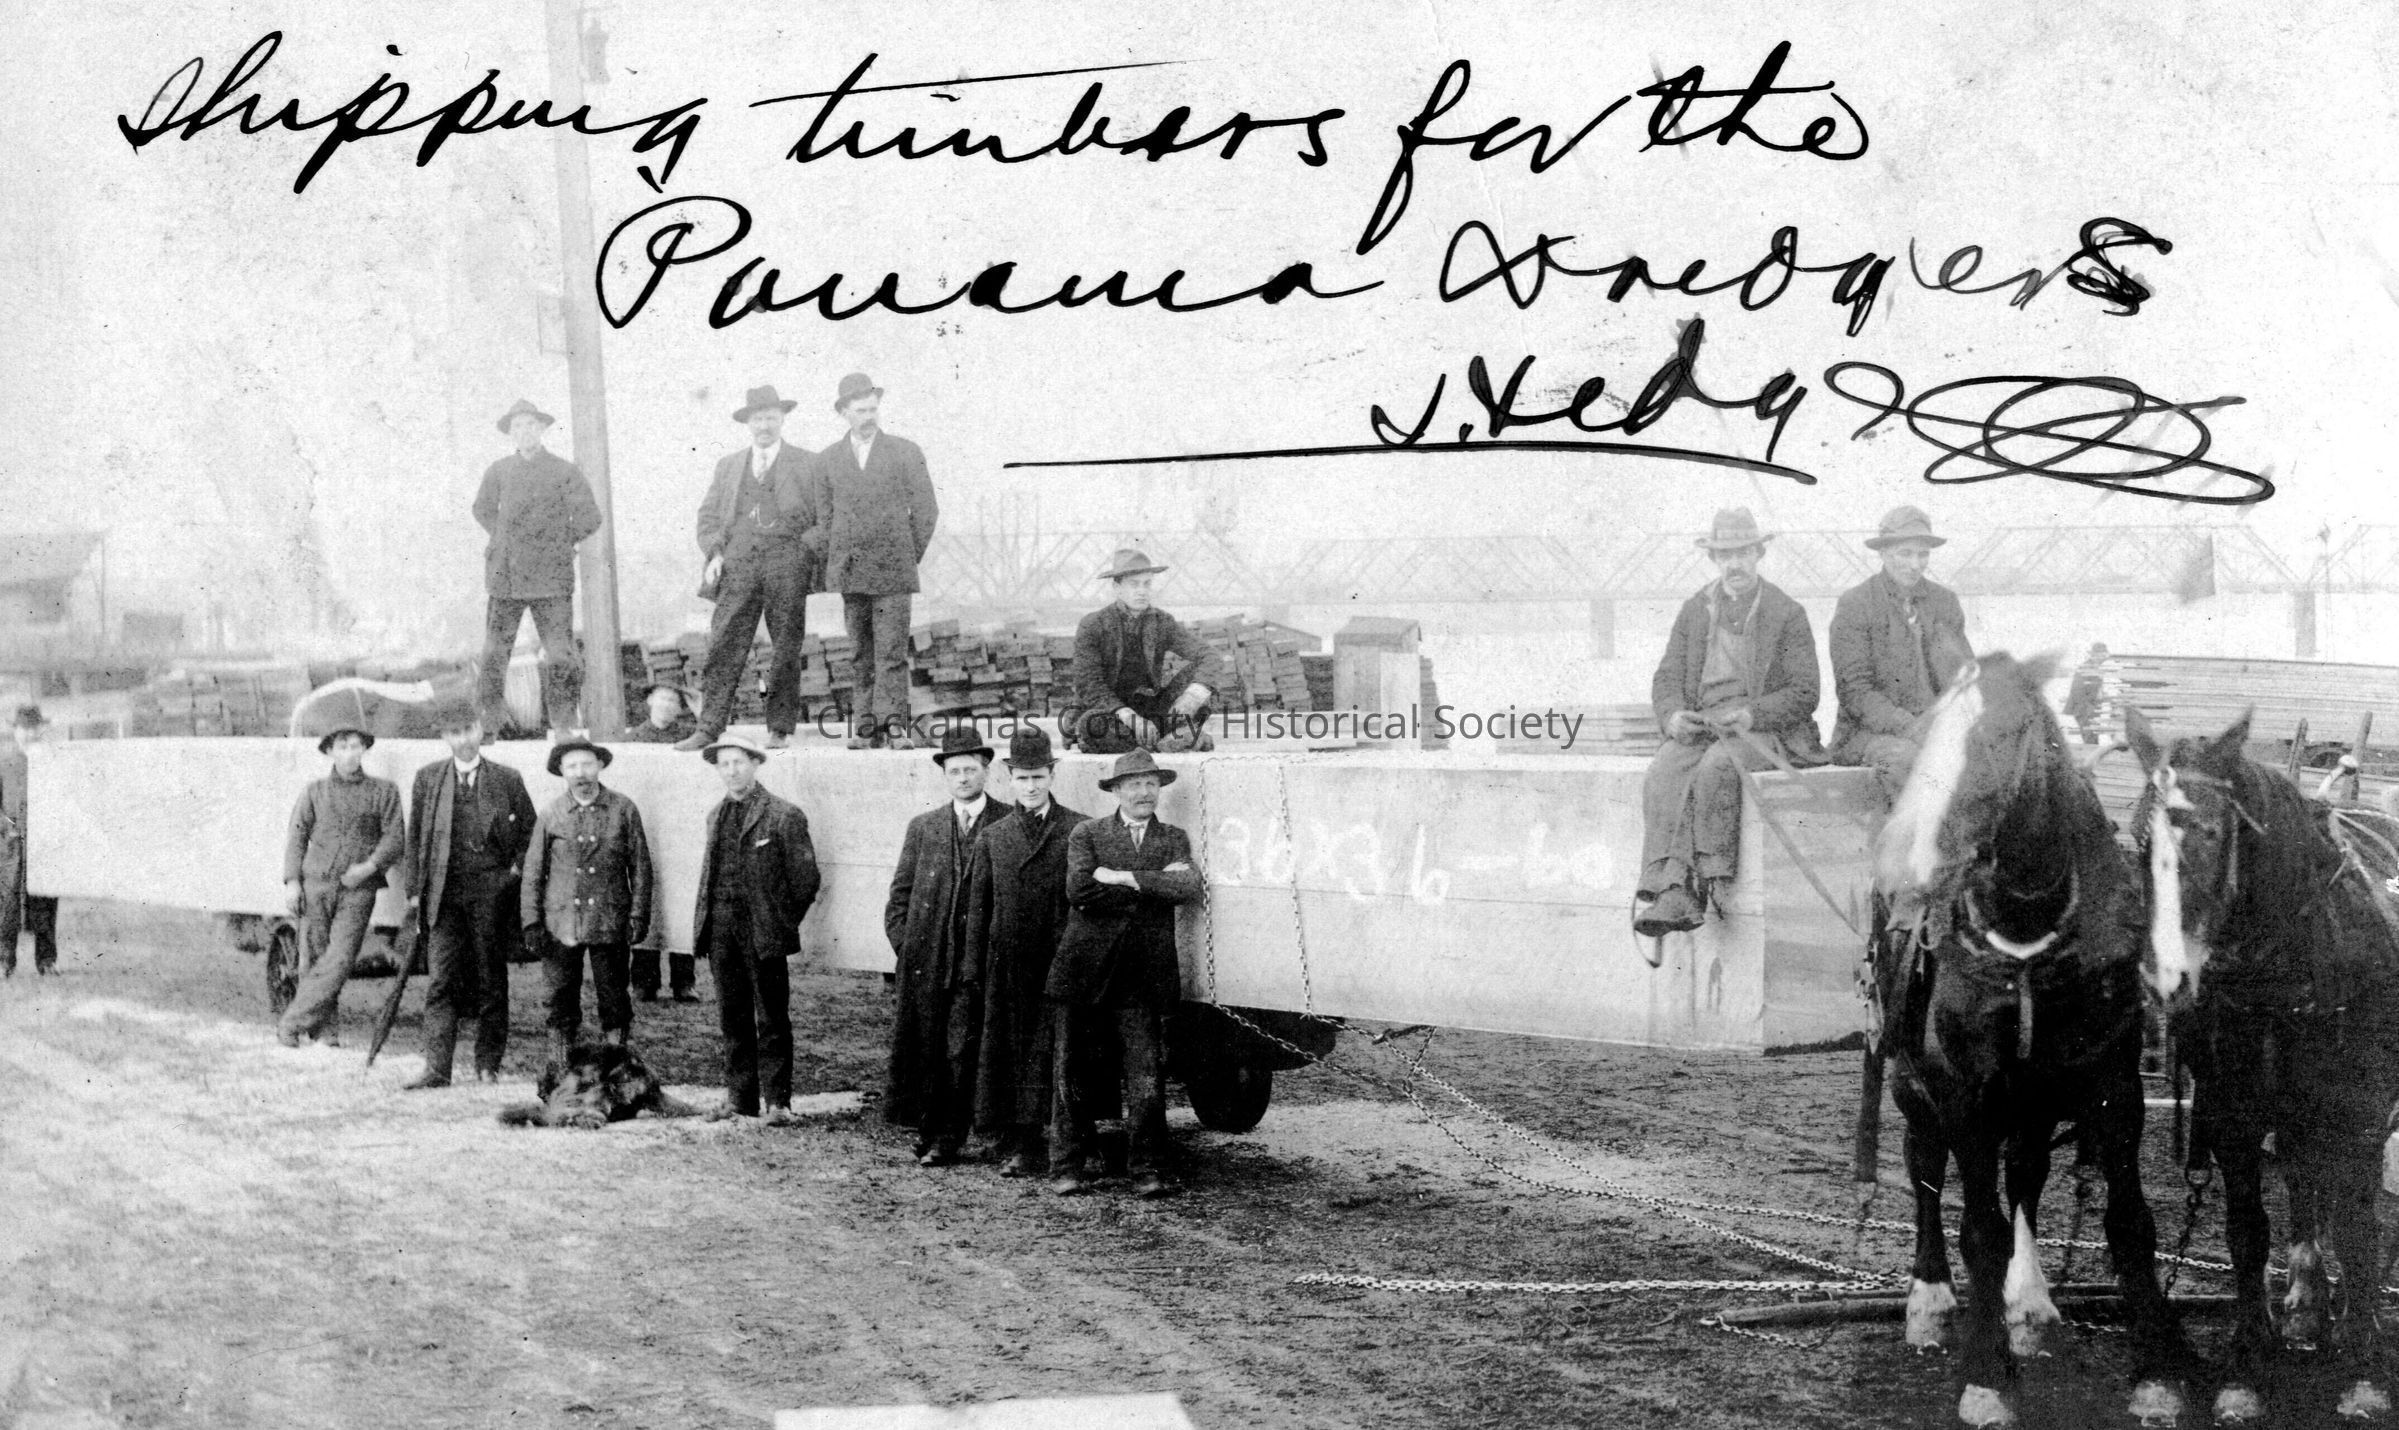 Shipping timbers for the
Panama Dredgers
J. Hedg
Clackamas County Historical Society